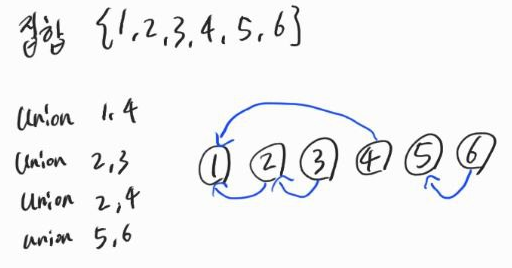 집합 {1,2,3,4,5,6}
union 1,4
union 2,3
union 2,4
union 5,6
1 2 3 4 5 6